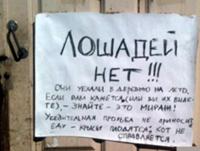 ЛОШАДЕЙ
НЕТ!!!
ОНИ УЕХАЛИ В ДЕРЕВНЮ НА ЛЕТО.
ЕСЛИ ВАМ КАЖЕТСЯ (ИЛИ ВЫ ИХ ВИДИ-
ТЕ), – ЗНАЙТЕ – ЭТО МИРАЖ!
УБЕДИТЕЛЬНАЯ ПРОСЬБА НЕ ПРИНОСИТЬ
ЕДУ – КРЫСЫ ПЛОДЯТСЯ, КОТ НЕ
СПРАВЛЯЕТСЯ.